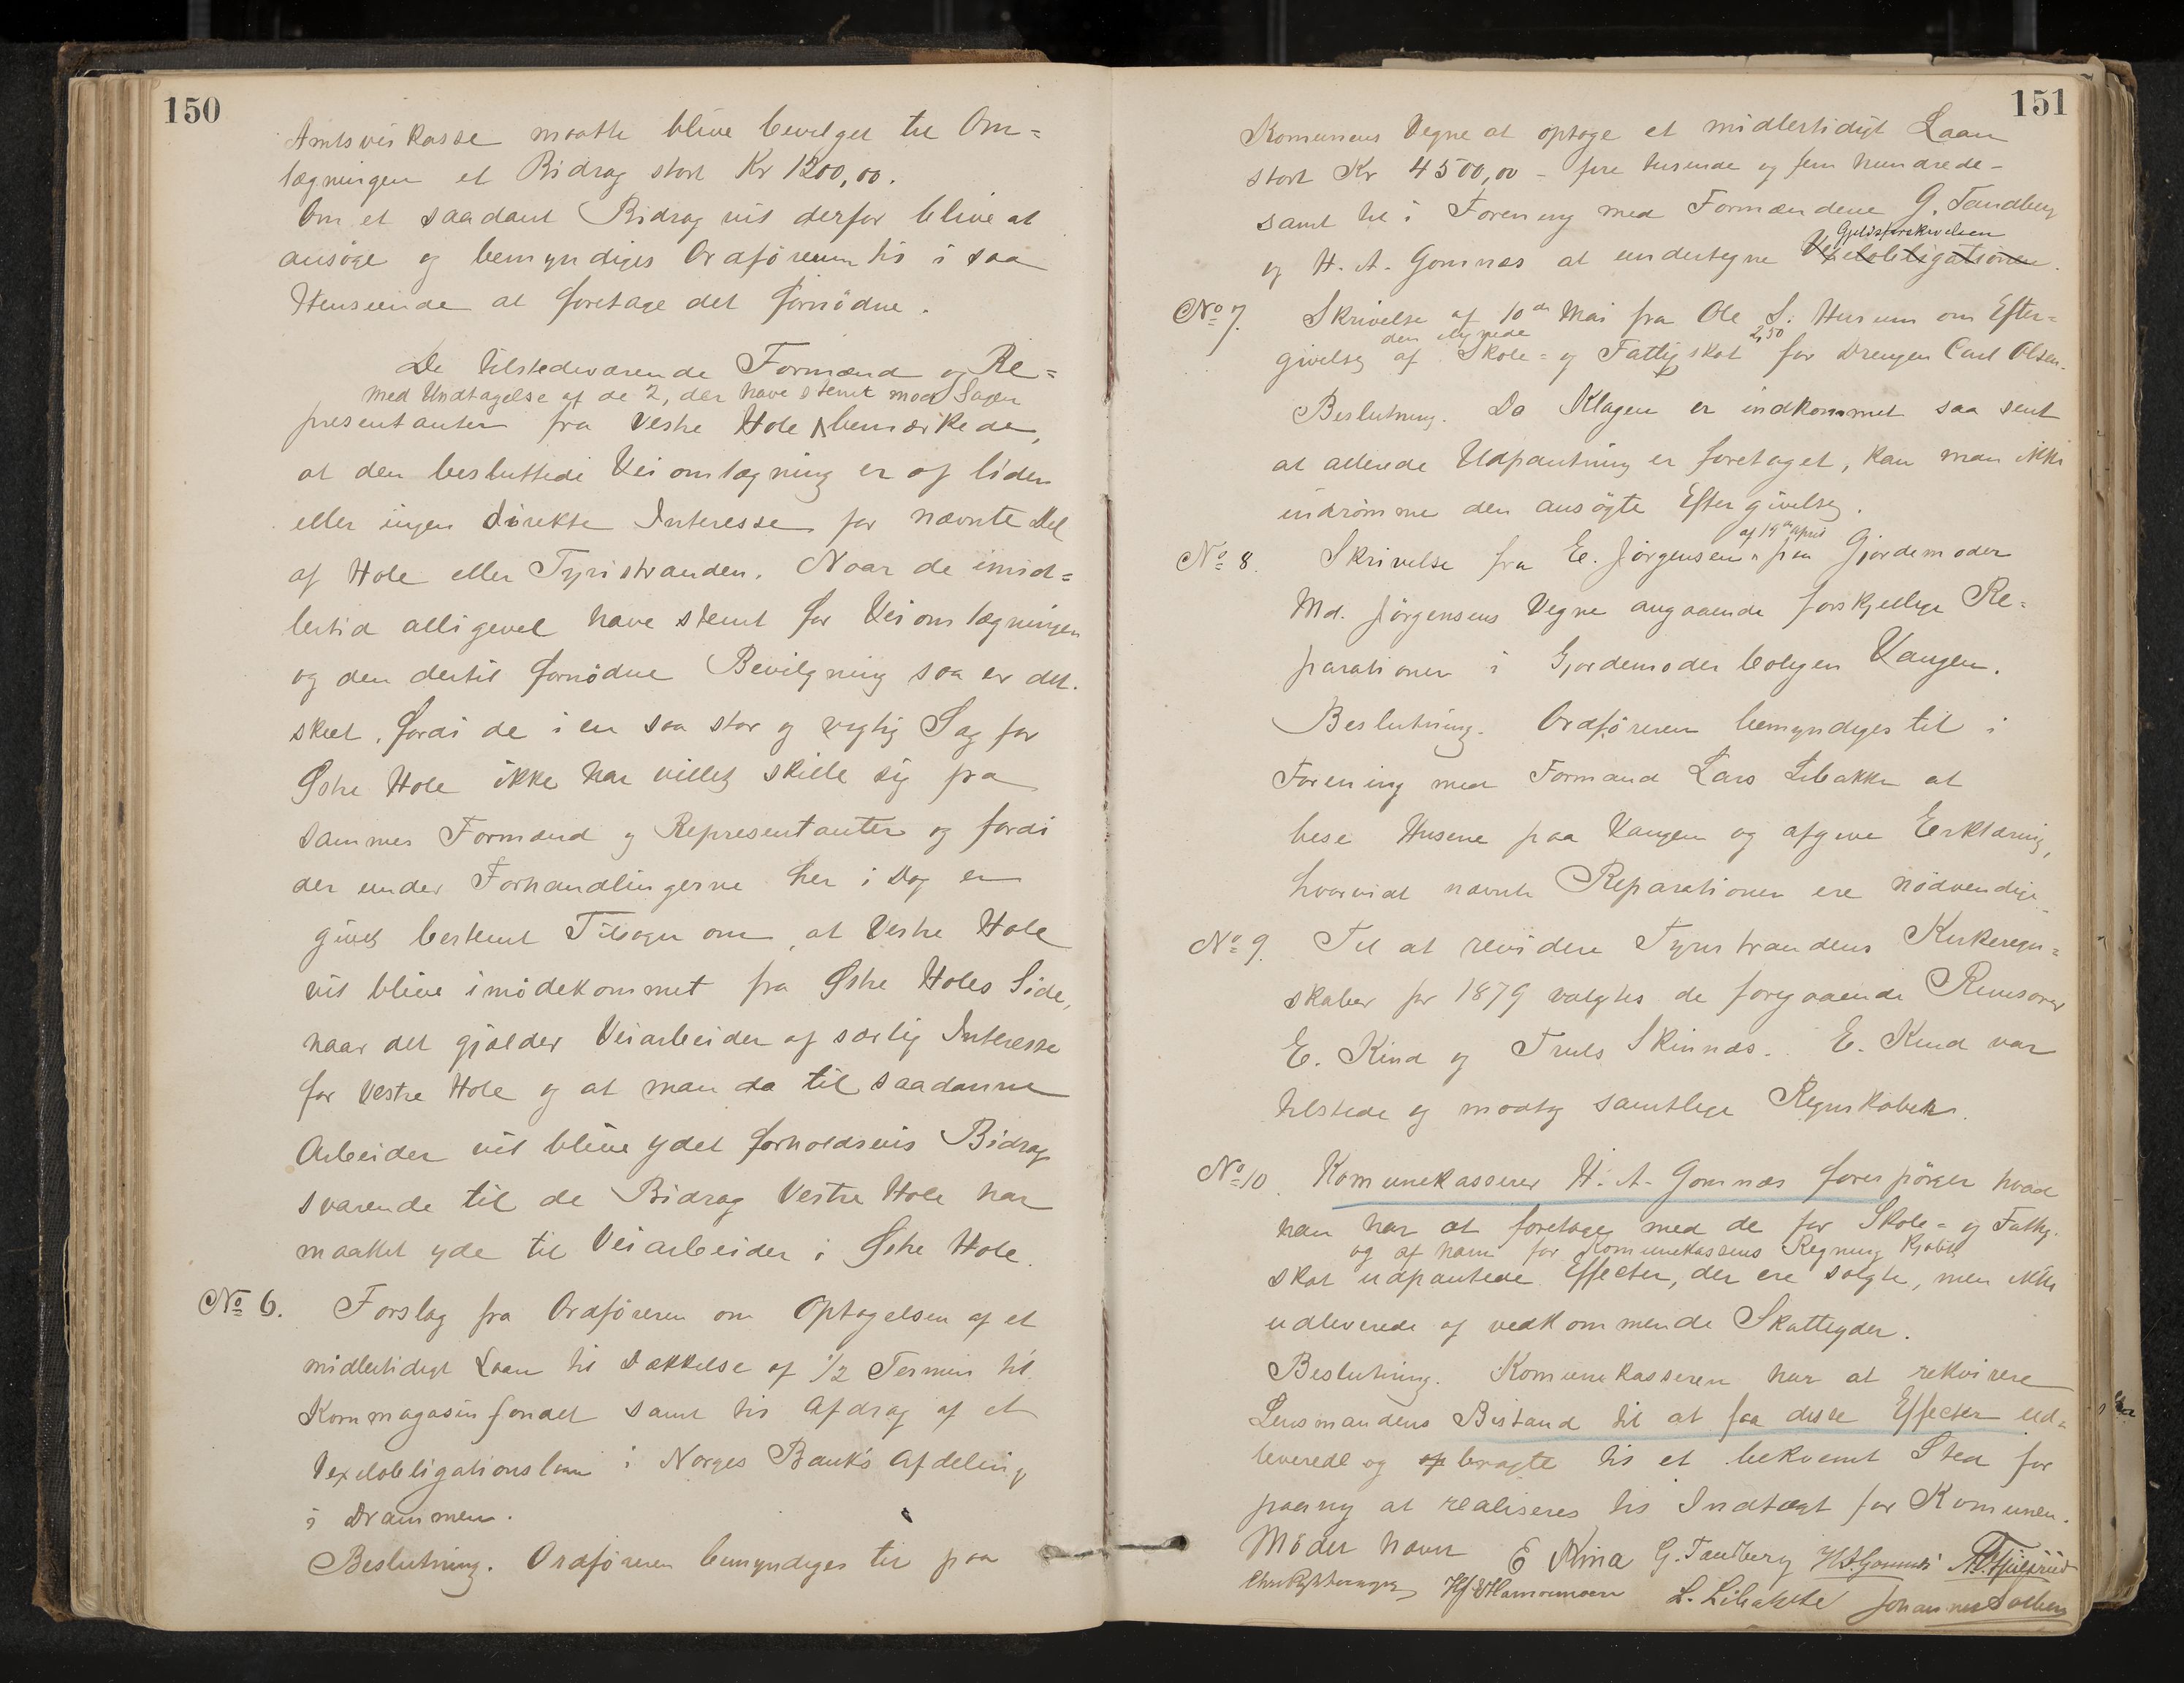 150
Amtsveikasse maatte blive bevilget til Om=
lægningen et Bidrag stort Kr 1200,00.
Om et saadant Bidrag vil derfor blive at
ansøge og bemyndiges Ordføreren til i saa
Henseende at foretage det fornødne.
De tilstedeværende Formænd og Re=
med Undtagelse af de 2, der have stemt mod Sagen
presentanter fra Vestre Hole bemærkede,
at den besluttede Veiomlægning er af liden
eller ingen direkte Interesse for nævnte Del
af Hole eller Tyristranden. Naar de imid=
lertid alligevel have stemt for Veiomlægningen
og den dertil fornødne Bevilgning saa er det
skeet, fordi de i en saa stor og vigtig Sag for
Østre Hole ikke har villet skille sig fra
sammes Formænd og Representanter og fordi
der under Forhandlingerne her i Dag er
givet bestemt Tilsagn om, at Vestre Hole
vil blive imødekommet fra Østre Holes Side,
naar det gjælder Veiarbeider af særlig Interesse
for Vestre Hole og at man da til saadanne
Arbeider vil blive ydet forholdsvis Bidrag
svarende til de Bidrag Vestre Hole har
maattet yde til Veiarbeider i Østre Hole.
No 6. Forslag fra Ordføreren om Optagelsen af et
midlertidigt Laan til Dækkelse af 1/2 Termin til
Kornmagasinfondet samt til Afdrag af et
Vexelobligationslaan i Norges Banks Afdeling
i Drammen.
Beslutning. Ordføreren bemyndiges til paa
151
Komunens Vegne at optage et midlertidigt Laan
stort Kr 4500,00 - fire tusende og fem hundrede -
samt til i Forening med Formændene G. Tandberg
Gjeldsforskrivelsen
og H. A. Gomnæs at undertegne Vexelobligationen.
No 7. Skrivelse af 10de Mai fra Ole S. Husum om Efter=
den ilignede 2,50
givelse af Skole= og Fattigskat for Drengen Carl Olsen.
Beslutning. Da Klagen er indkommet saa sent
at allerede Udpantning er foretaget, kan man ikke
indrømme den ansøgte Eftergivelse.
af 19de April
No 8. Skrivelse fra E. Jørgensen paa Gjordemoder
Md. Jørgensens Vegne angaaende forskjellige Re=
parationer i Gjordemoderboligen Vangen.
Beslutning. Ordføreren bemyndiges til i
Forening med Formand Lars Libakke at
bese Husene paa Vangen og afgive Erklæring,
hvorvidt nævnte Reparationer ere nødvendige.
No 9. Til at revidere Tyristrandens Kirkeregn=
skaber for 1879 valgtes de foregaaende Revisorer
E. Kind og Truls Skinnæs. E. Kind var
tilstede og modtog samtlige Regnskaber.
No 10. Komunekasserer H. A. Gomnæs forespørger hvad
han har at foretage med de for Skole= og Fattig.
og af ham for Komunekassens Regning kjøbte
skat udpantede Effecter, der ere solgte, men ikke
udleverede af vedkommende Skatteyder.
Beslutning. Komunekassereren har at rekvirere
Lensmandens Bistand til at faa disse Effecter ud=
leverede og op bragte til et bekvemt Sted for
paany at realiseres til Indtægt for Komunen.
Mødet hævet E Kind G. Tandberg H.A. Gomnæs
L. Libakke Johannes Solberg